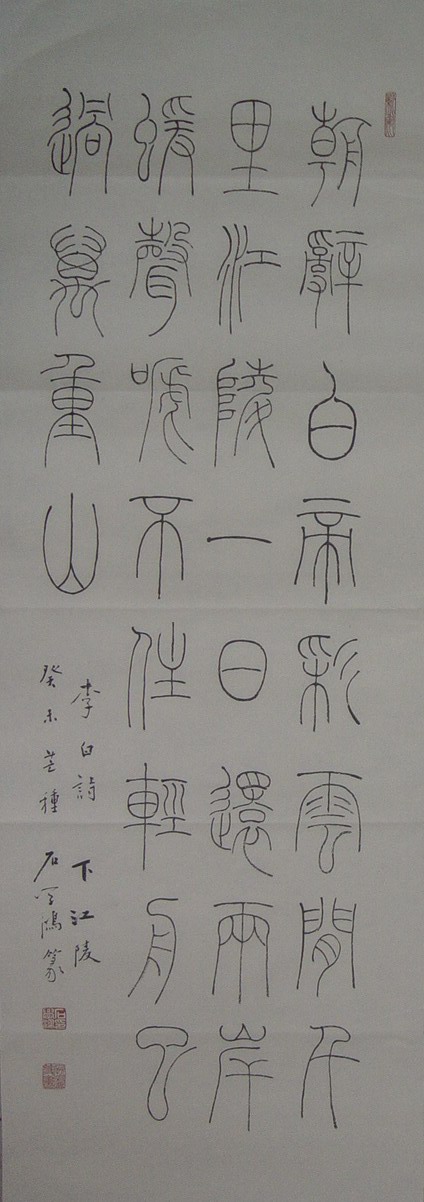 朝辭白帝彩雲間千
里江陵一日還兩岸
蝯聲嗁不住輕舟已
過萬重山
李白詩 下江陵
癸未芒種 石鴻篆